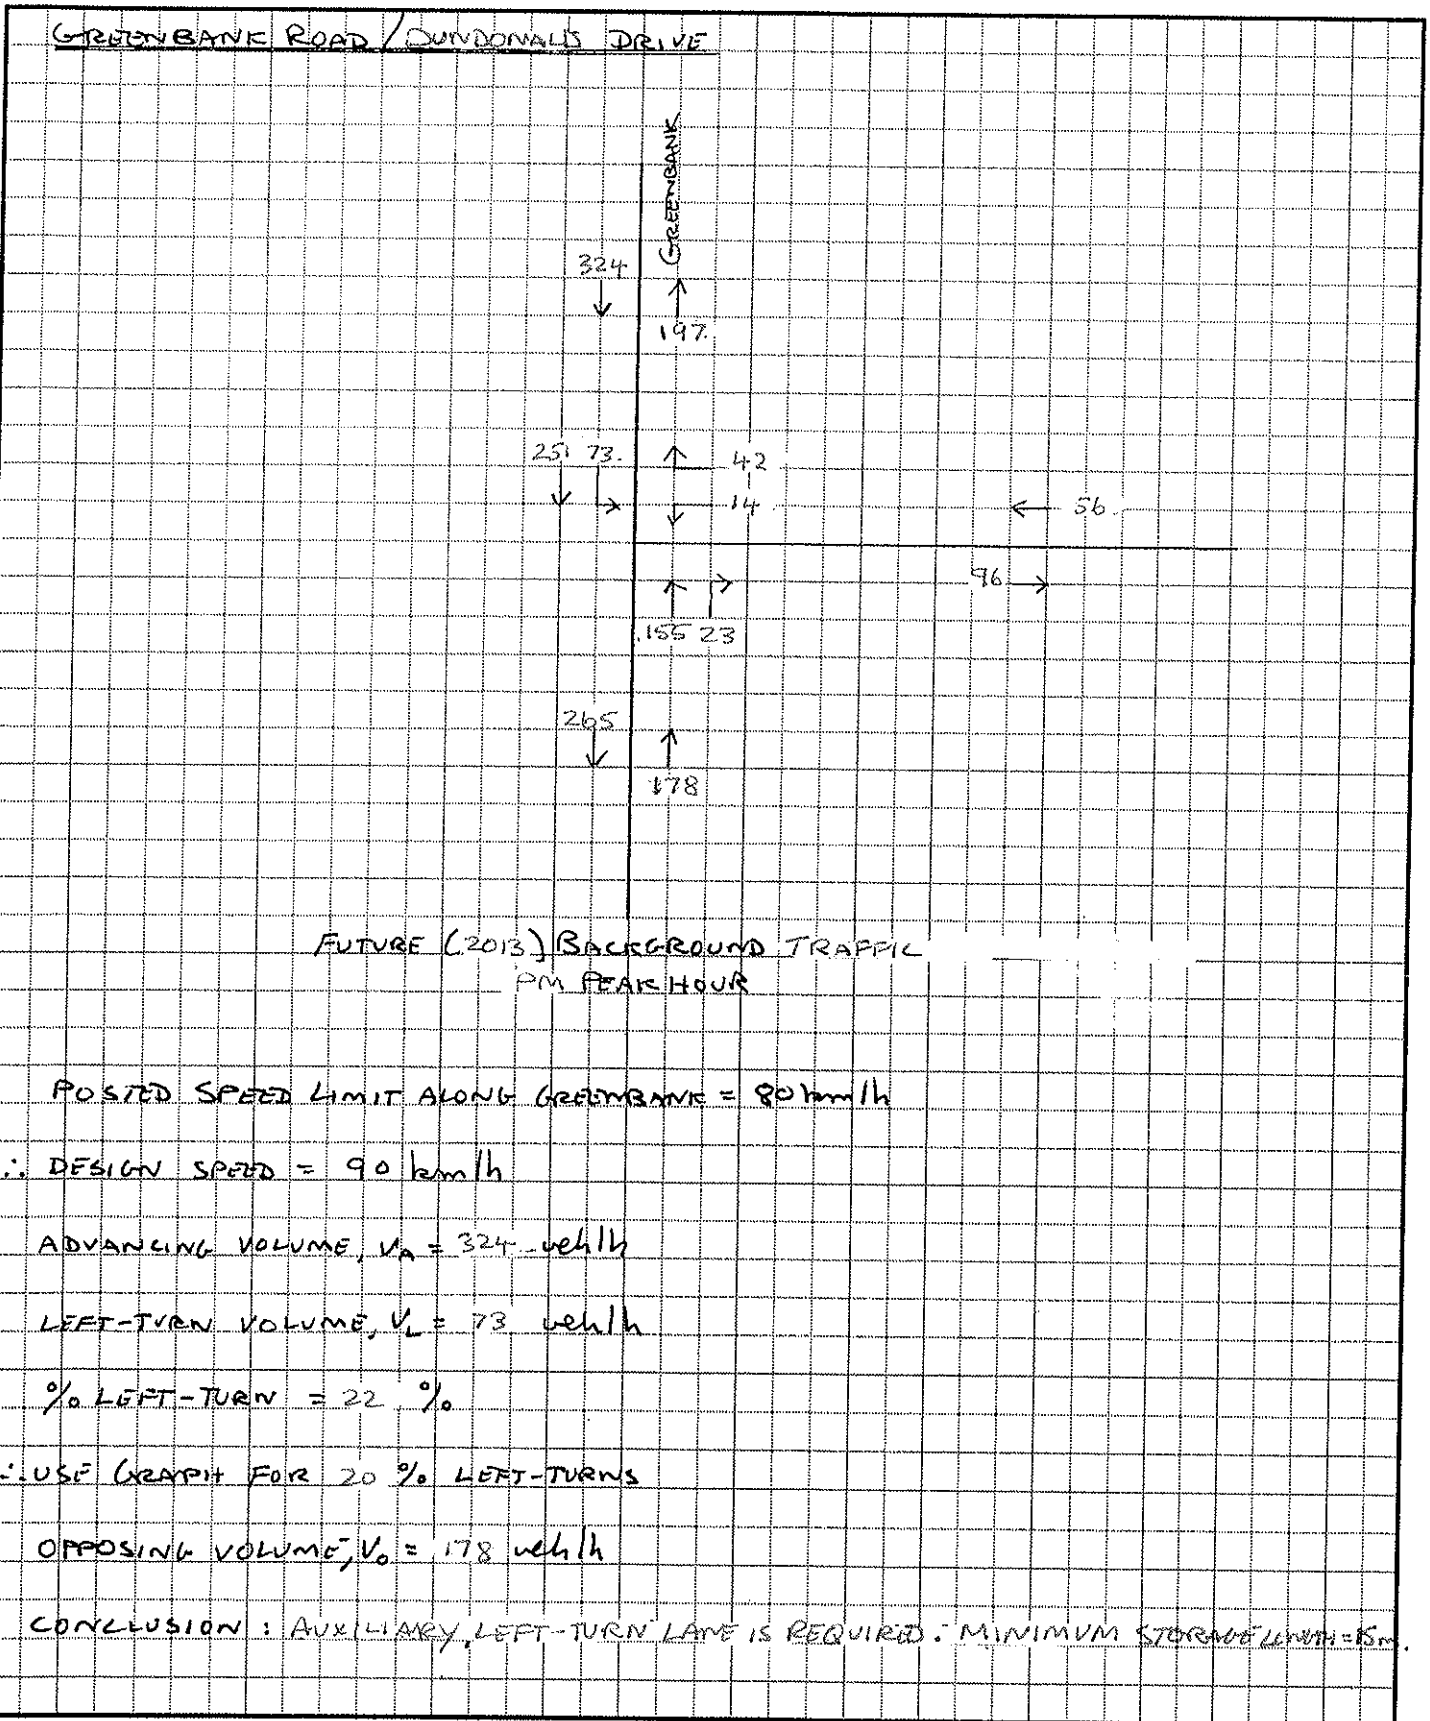 GREENBANK ROAD / DUNDONALD DRIVE
GREENBANK
324
197
251 73
42
14
56
96
155 23
265
178
FUTURE (2013) BACKGROUND TRAFFIC
PM PEAK HOUR
POSTED SPEED LIMIT ALONG GREENBANK = 80 km/h
∴ DESIGN SPEED = 90 km/h
ADVANCING VOLUME, VA = 324 veh/h
LEFT-TURN VOLUME, VL = 73 veh/h
% LEFT-TURN = 22 %
∴ USE GRAPH FOR 20 % LEFT-TURNS
OPPOSING VOLUME, Vo = 178 veh/h
CONCLUSION : AUXILIARY LEFT-TURN LANE IS REQUIRED. MINIMUM STORAGE LENGTH = 15m.